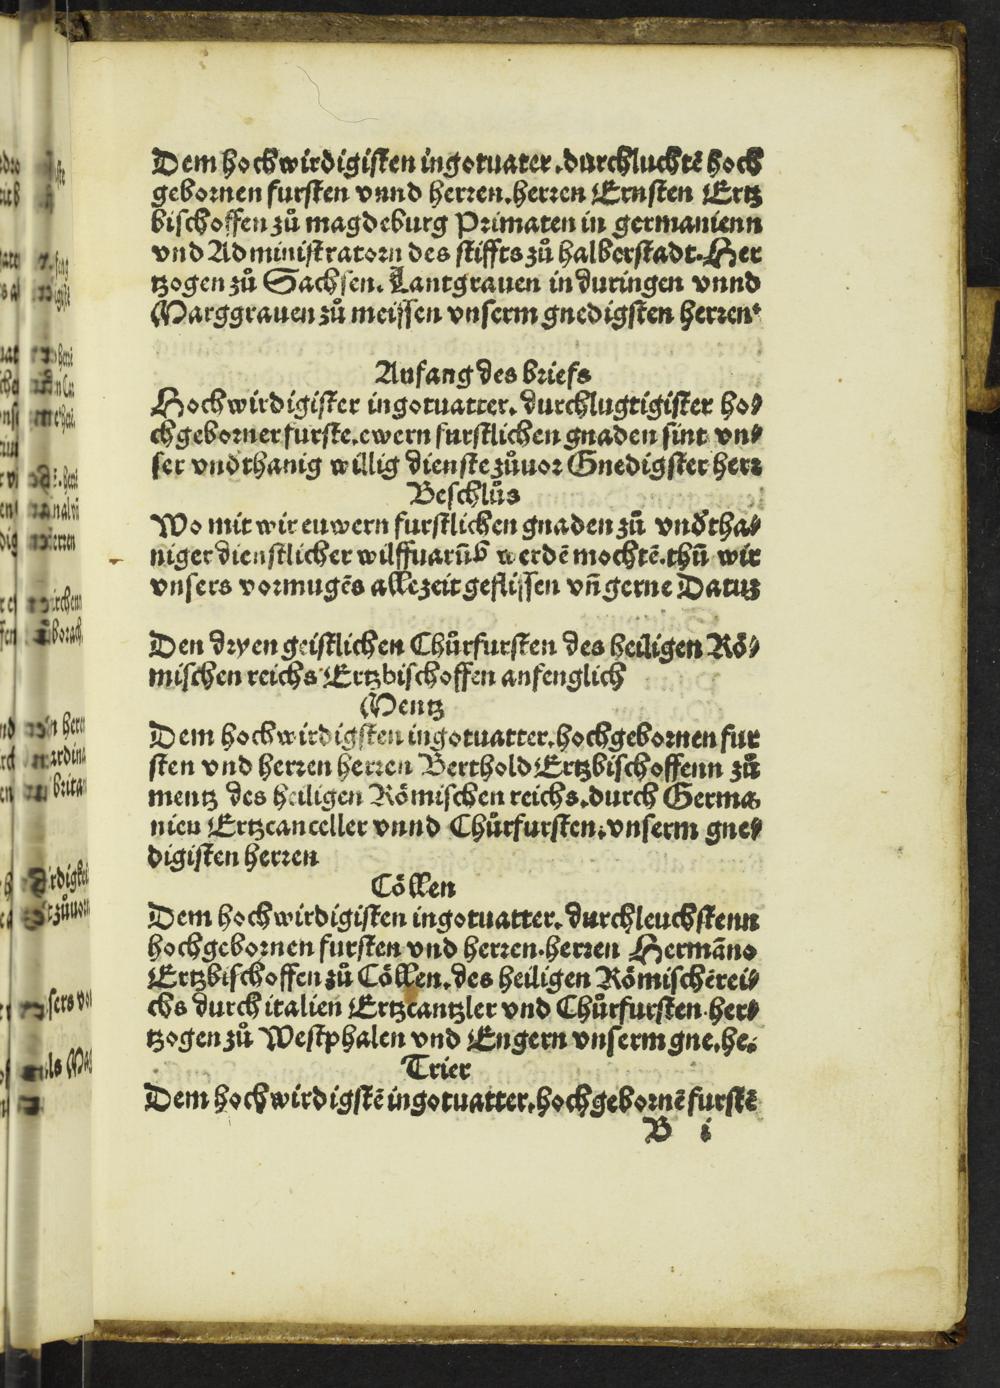 Dem hochwirdigisten ingotuater. durchluchtē hoch
gebornen fursten vnnd herren. herren Ernsten Ertz
bischoffen zů magdeburg Primaten in germanienn
vnd Administratorn des stiffts zů halberstadt. Her
tzogen zů Sachsen. Lantgrauen in duringen vnnd
Marggrauen zů meissen vnserm gnedigsten herren
Anfang des briefs
Hochwirdigister ingotuatter. durchlugtigister ho⸗
chgeborner furste. ewern furstlichen gnaden sint vn⸗
ser vnd̄thanig willig dienste zůuor Gnedigster herr
Beschlůs
Wo mit wir euwern furstlichen gnaden zů vnd̄tha⸗
niger dienstlicher wilffuarūg werdē mochtē. thū wir
vnsers vormugēs allezeit geflissen vn̄ gerne Datuz
Den dryen geistlichen Chůrfursten des heiligen Rö⸗
mischen reichs Ertzbischoffen anfenglich
Mentz
Dem hochwirdigsten ingotuatter. hochgebornen fur
sten vnd herren herren Berthold Ertzbischoffenn zů
mentz des heiligen Römischen reichs. durch Germa
nien Ertzcanceller vnnd Chůrfursten. vnserm gne⸗
digisten herren
Cöllen
Dem hochwirdigisten ingotuatter. durchleuchstenn
hochgebornen fursten vnd herren. herren Hermāno
Ertzbischoffen zů Cöllen. des heiligen Römischē rei⸗
chs durch italien Ertzcantzler vnd Chůrfursten. her⸗
tzogen zů Westphalen vnd Engern vnserm gne. he.
Trier
Dem hochwirdigstē ingotuatter. hochgebornē furstē
B i